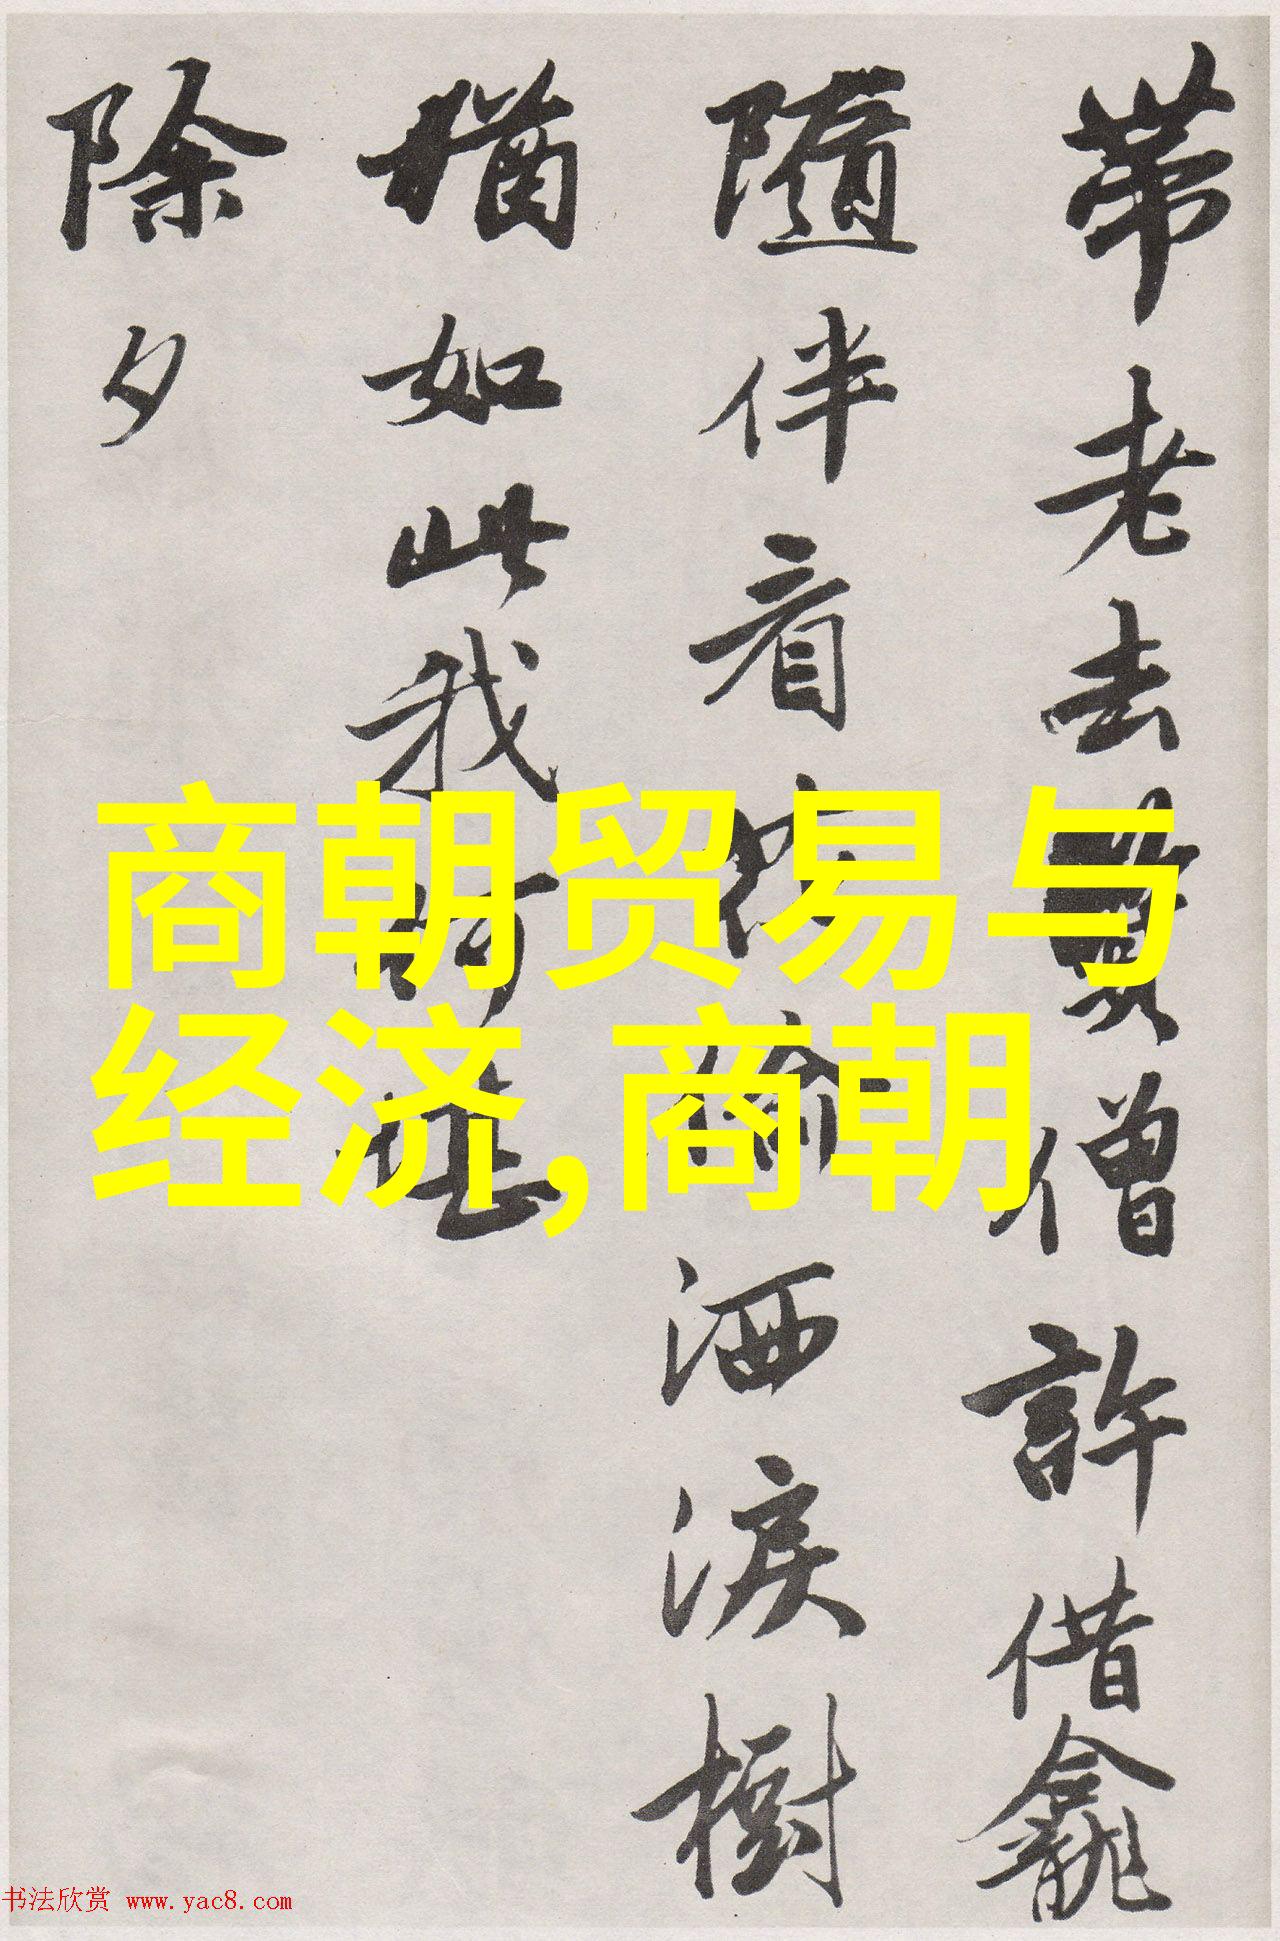 帶老去僧許借龕
隨伴看洒淚樹
猶如此我
除夕
商朝贸易与
经济,商朝
书法欣赏 www.yac8.com